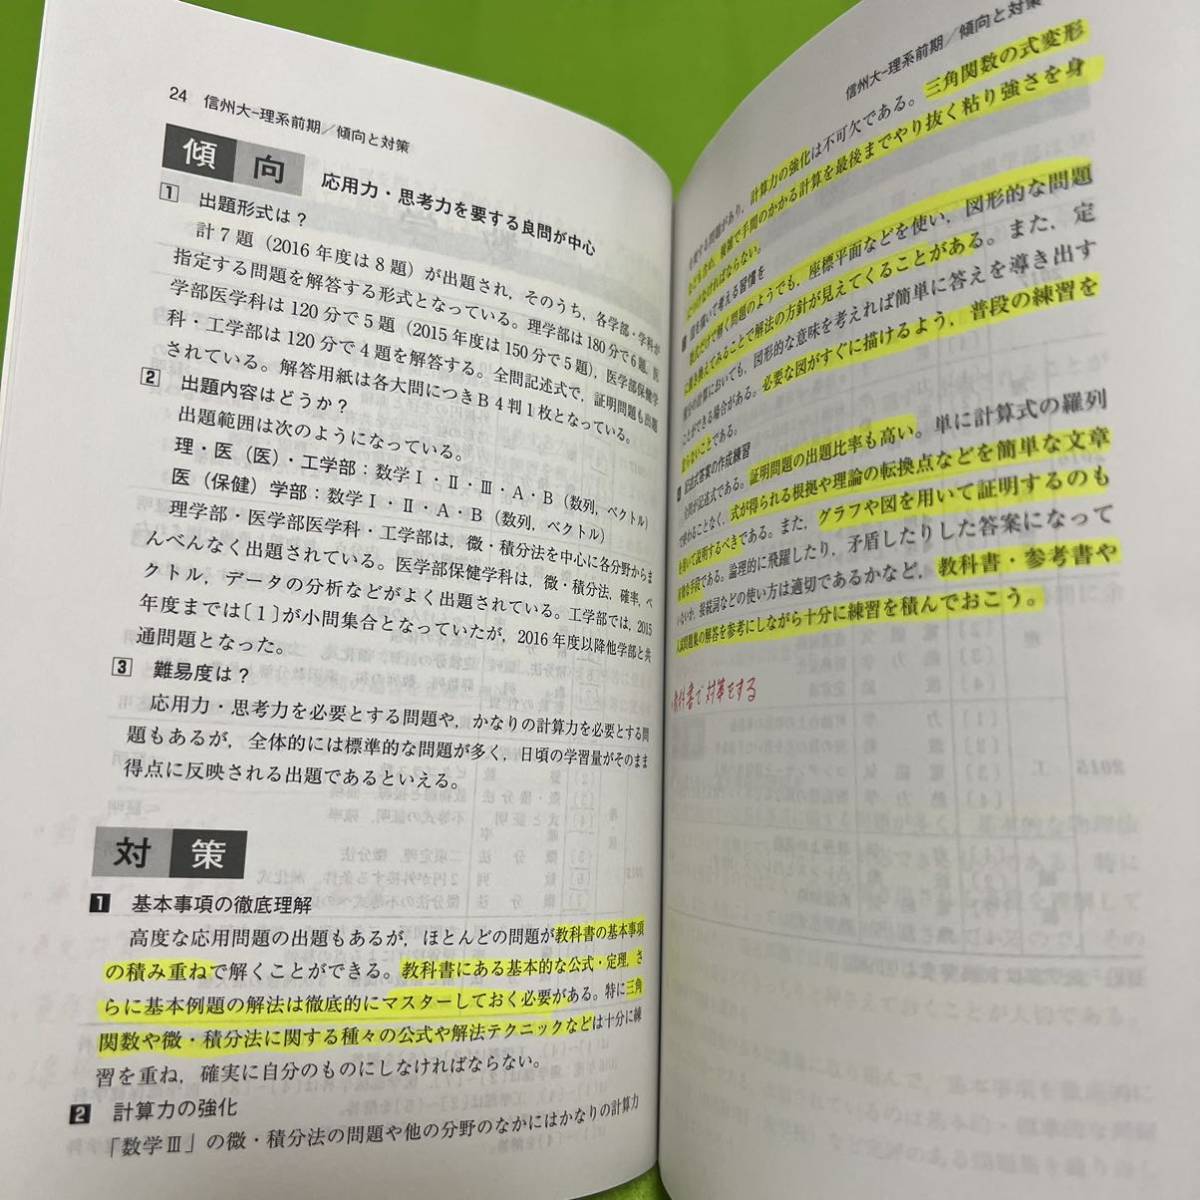 24 信州大-理系前期／傾向と対策
傾向 応用力・思考力を要する良問が中心
1 出題形式は？
計7題（2016年度は8題）が出題され，そのうち，各学部・学科が
指定する問題を解答する形式となっている。理学部は180分で6題，医
学部医学科は120分で5題（2015年度は150分で5題），医学部保健学
科・工学部は120分で4題を解答する。全問記述式で，証明問題も出題
されている。解答用紙は各大問につきB4判1枚となっている。
2 出題内容はどうか？
出題範囲は次のようになっている。
理・医（医）・工学部：数学Ⅰ・Ⅱ・Ⅲ・A・B（数列，ベクトル）
医（保健）学部：数学Ⅰ・Ⅱ・A・B（数列，ベクトル）
理学部・医学部医学科・工学部は，微・積分法を中心に各分野からま
んべんなく出題されている。医学部保健学科は，微・積分法，確率，ベ
クトル，データの分析などがよく出題されている。工学部では，2015
年度までは〔1〕が小問集合となっていたが，2016年度以降他学部と共
通問題となった。
3 難易度は？
応用力・思考力を必要とする問題や，かなりの計算力を必要とする問
題もあるが，全体的には標準的な問題が多く，日頃の学習量がそのまま
得点に反映される出題であるといえる。
対策
1 基本事項の徹底理解
高度な応用問題の出題もあるが，ほとんどの問題が教科書の基本事項
の積み重ねで解くことができる。教科書にある基本的な公式・定理，さ
らに基本例題の解法は徹底的にマスターしておく必要がある。特に三角
関数や微・積分法に関する種々の公式や解法テクニックなどは十分に練
習を重ね，確実に自分のものにしなければならない。
2 計算力の強化
「数学Ⅲ」の微・積分法の問題や他の分野のなかにはかなりの計算力
信州大-理系前期／傾向と対策
を要する問題があり，計算力の強化は不可欠である。三角関数の式変形
なども含め，複雑で手間のかかる計算を最後までやり抜く粘り強さを身
につけなければならない。
図を描いて考える習慣を
数式だけで解く問題のようでも，座標平面などを使い，図形的な問題
に置き換えてみることで解法の方針が見えてくることがある。また，定
積分の計算においても，図形的な意味を考えれば簡単に答えを導き出す
ことができる場合がある。必要な図がすぐに描けるよう，普段の練習を
怠らないことである。
記述式答案の作成練習
全問が記述式である。証明問題の出題比率も高い。単に計算式の羅列
で終わることなく，式が得られる根拠や理論の転換点などを簡単な文章
を用いて説明するべきである。また，グラフや図を用いて証明するのも
有効な手段である。論理的に飛躍したり，矛盾したりした答案になって
いないか，接続詞などの使い方は適切であるかなど，教科書・参考書や
入試問題集の解答を参考にしながら十分に練習を積んでおこう。
教科書で対策をする